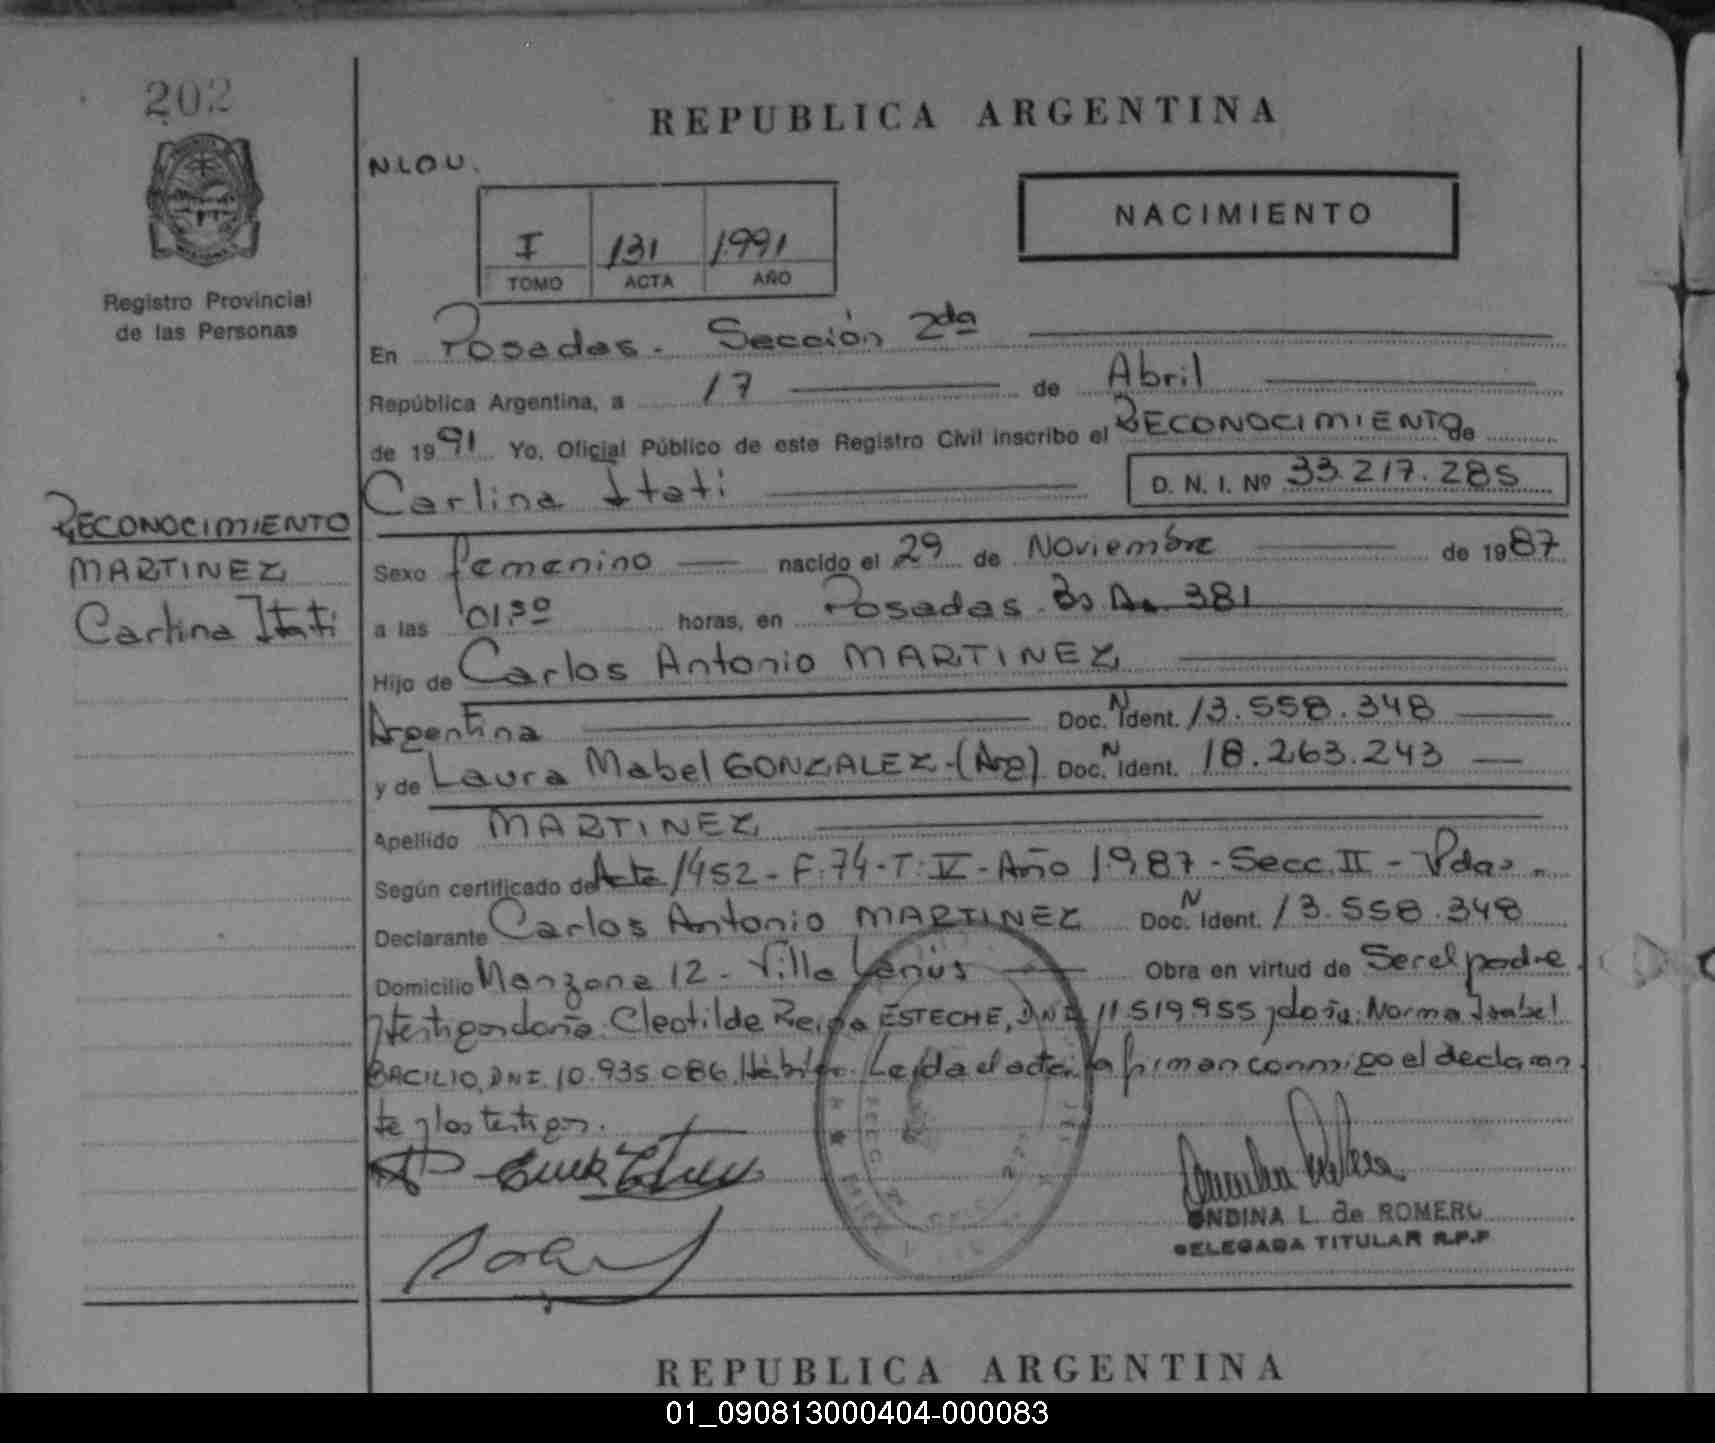 202
REPUBLICA ARGENTINA
N.I.O.U.
NACIMIENTO
I 131 1991
TOMO ACTA AÑO
Registro Provincial
de las Personas
En Posadas. Sección 2da
República Argentina, a 17 de Abril
de 1991 Yo, Oficial Público de este Registro Civil inscribo el RECONOCIMIENTO de
Carlina Itati D. N. I. Nº 33.217.285
RECONOCIMIENTO
MARTINEZ
Carlina Itati
Sexo femenino nacido el 29 de Noviembre de 1987
a las 01:30 horas, en Posadas. Bs As 381
Hijo de Carlos Antonio MARTINEZ
Argentina Doc. N Ident. 13.558.348
y de Laura Mabel GONZALEZ - (Arg) Doc. N Ident. 18.263.243
Apellido MARTINEZ
Según certificado de Acta 1452 - F. 74 - T. IV - Año 1987 - Secc. II - Pdas
Declarante Carlos Antonio MARTINEZ Doc. N Ident. 13.558.348
Domicilio Manzana 12 - Villa Lanús Obra en virtud de Ser el padre
y testigos doña: Cleotilde Reina ESTECHE, DNI 11.519.955 y doña: Norma Isabel
BACILIO, DNI. 10.935.086. Hábiles. Leída el acta, la firman conmigo el declaran
te y los testigos.
ONDINA L. de ROMERO
DELEGADA TITULAR R.P.P
REPUBLICA ARGENTINA
01_090813000404-000083